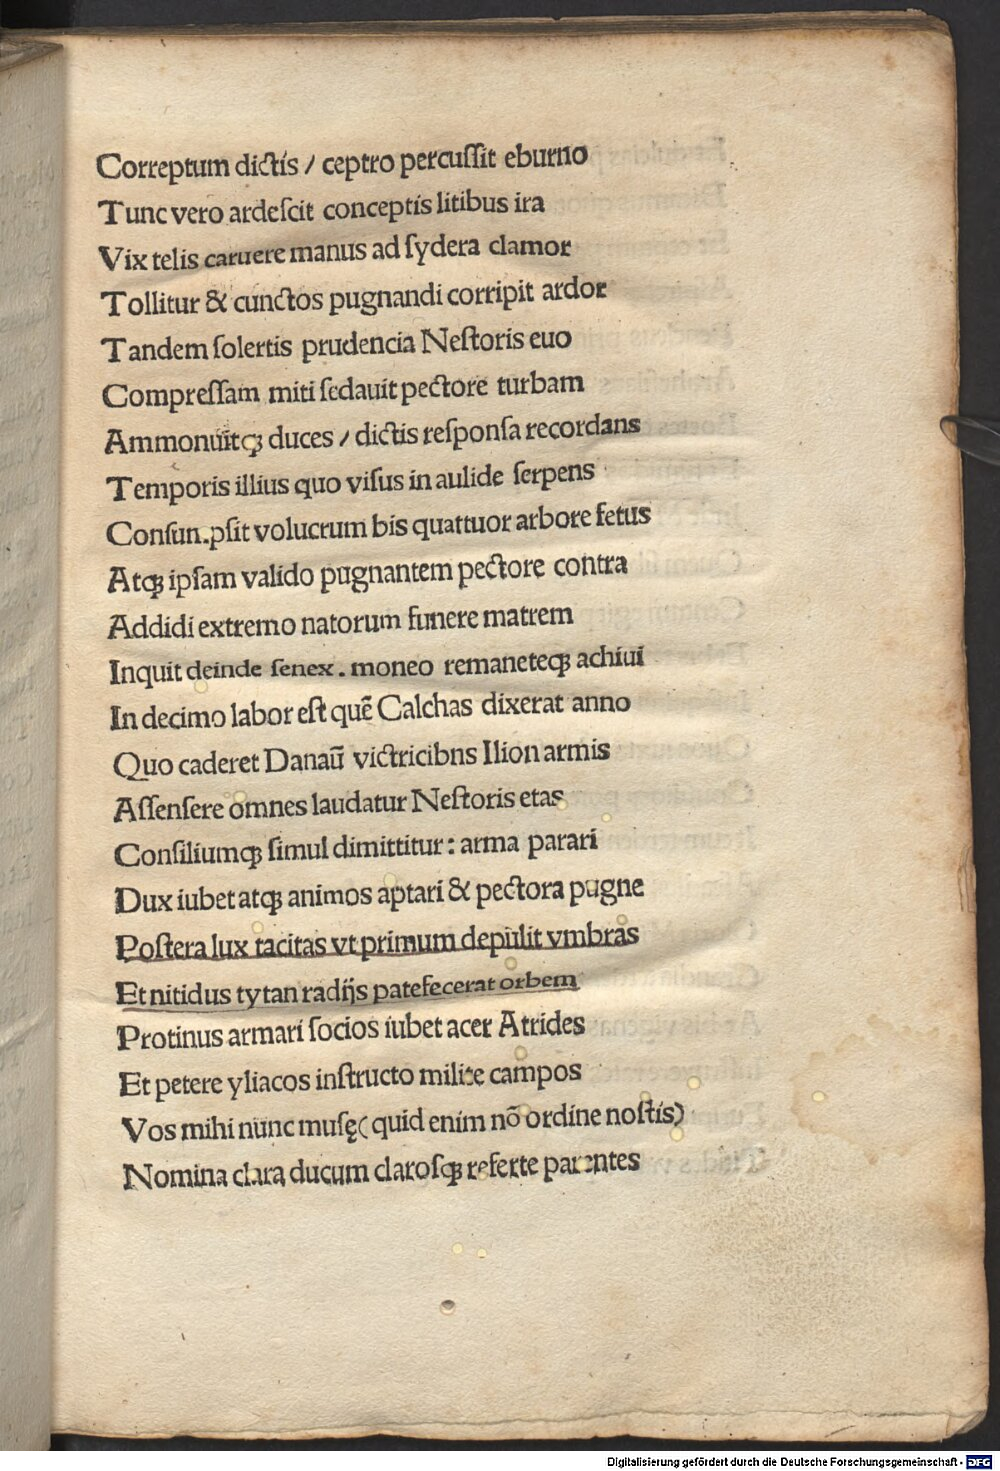 Correptum dictis / ceptro percussit eburno
Tunc vero ardeſcit conceptis litibus ira
Vix telis caruere manus ad ſydera clamor
Tollitur & cunctos pugnandi corripit ardor
Tandem ſolertis prudencia Neſtoris euo
Compreſſam miti ſedauit pectore turbam
Ammonuitqꝫ duces / dictis reſponſa recordans
Temporis illius quo viſus in aulide ſerpens
Conſun.pſit volucrum bis quattuor arbore fetus
Atqꝫ ipſam valido pugnantem pectore contra
Addidi extremo natorum funere matrem
Inquit deinde ſenex . moneo remaneteqꝫ achiui
In decimo labor eſt quē Calchas dixerat anno
Quo caderet Danaū victricibns Ilion armis
Aſſenſere omnes laudatur Neſtoris etas
Conſiliumqꝫ ſimul dimittitur : arma parari
Dux iubet atqꝫ animos aptari & pectora pugne
Poſtera lux tacitas vt primum depulit vmbras
Et nitidus tytan radijs patefecerat orbem
Protinus armari ſocios iubet acer Atrides
Et petere yliacos inſtructo milite campos
Vos mihi nunc muſę ( quid enim nō ordine noſtis )
Nomina clara ducum claroſqꝫ referte parentes
Digitalisierung gefördert durch die Deutsche Forschungsgemeinschaft - DFG